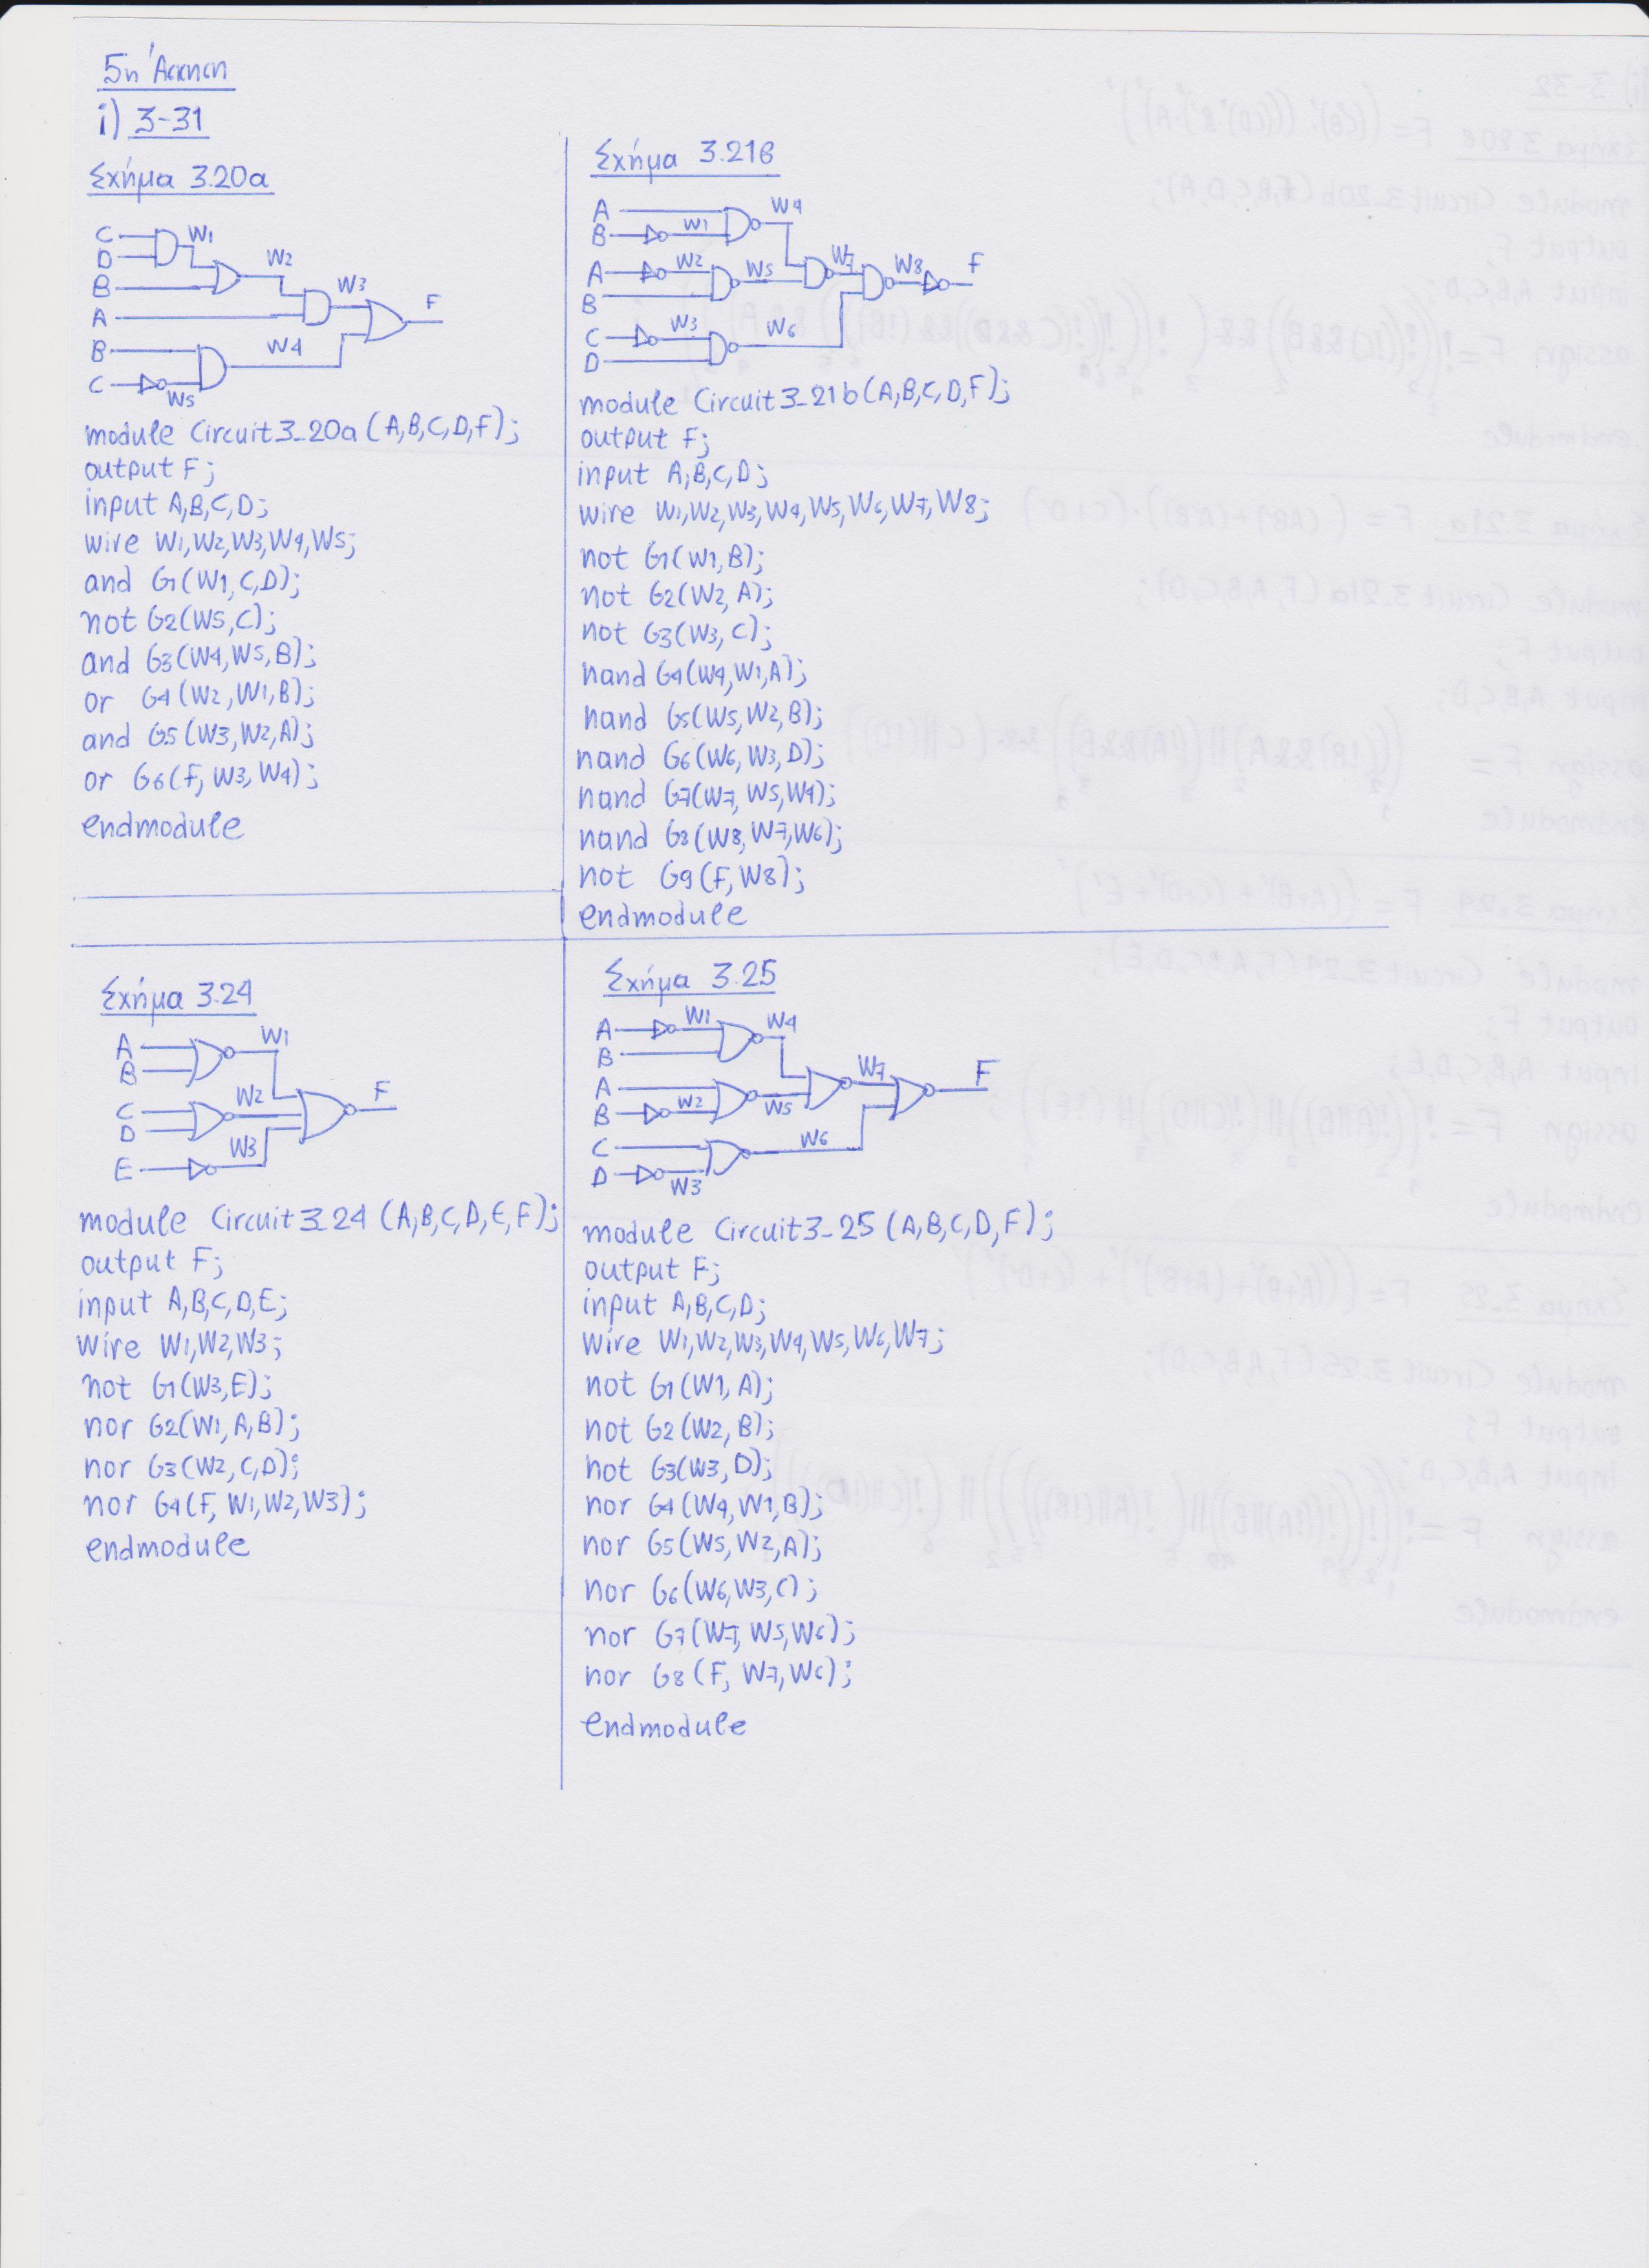 5η Άσκηση
i) 3-31
Σχήμα 3.20a
C
D
B
A
B
C
W1
W2
W3
W4
W5
F
module Circuit3_20a (A,B,C,D,F);
output F;
input A,B,C,D;
wire W1,W2,W3,W4,W5;
and G1(W1,C,D);
not G2(W5,C);
and G3(W4,W5,B);
or G4(W2,W1,B);
and G5(W3,W2,A);
or G6(F,W3,W4);
endmodule
Σχήμα 3.21β
A
B
A
B
C
D
W1
W2
W3
W4
W5
W6
W7
W8
F
module Circuit3_21b(A,B,C,D,F);
output F;
input A,B,C,D;
wire W1,W2,W3,W4,W5,W6,W7,W8;
not G1(W1,B);
not G2(W2,A);
not G3(W3,C);
nand G4(W4,W1,A);
nand G5(W5,W2,B);
nand G6(W6,W3,D);
nand G7(W7,W5,W4);
nand G8(W8,W7,W6);
not G9(F,W8);
endmodule
Σχήμα 3.24
A
B
C
D
E
W1
W2
W3
F
module Circuit3_24 (A,B,C,D,E,F);
output F;
input A,B,C,D,E;
wire W1,W2,W3;
not G1(W3,E);
nor G2(W1,A,B);
nor G3(W2,C,D);
nor G4(F,W1,W2,W3);
endmodule
Σχήμα 3.25
A
B
A
B
C
D
W1
W2
W3
W4
W5
W6
W7
F
module Circuit3_25 (A,B,C,D,F);
output F;
input A,B,C,D;
wire W1,W2,W3,W4,W5,W6,W7;
not G1(W1,A);
not G2(W2,B);
not G3(W3,D);
nor G4(W4,W1,B);
nor G5(W5,W2,A);
nor G6(W6,W3,C);
nor G7(W7,W5,W6);
nor G8(F,W7,W6);
endmodule